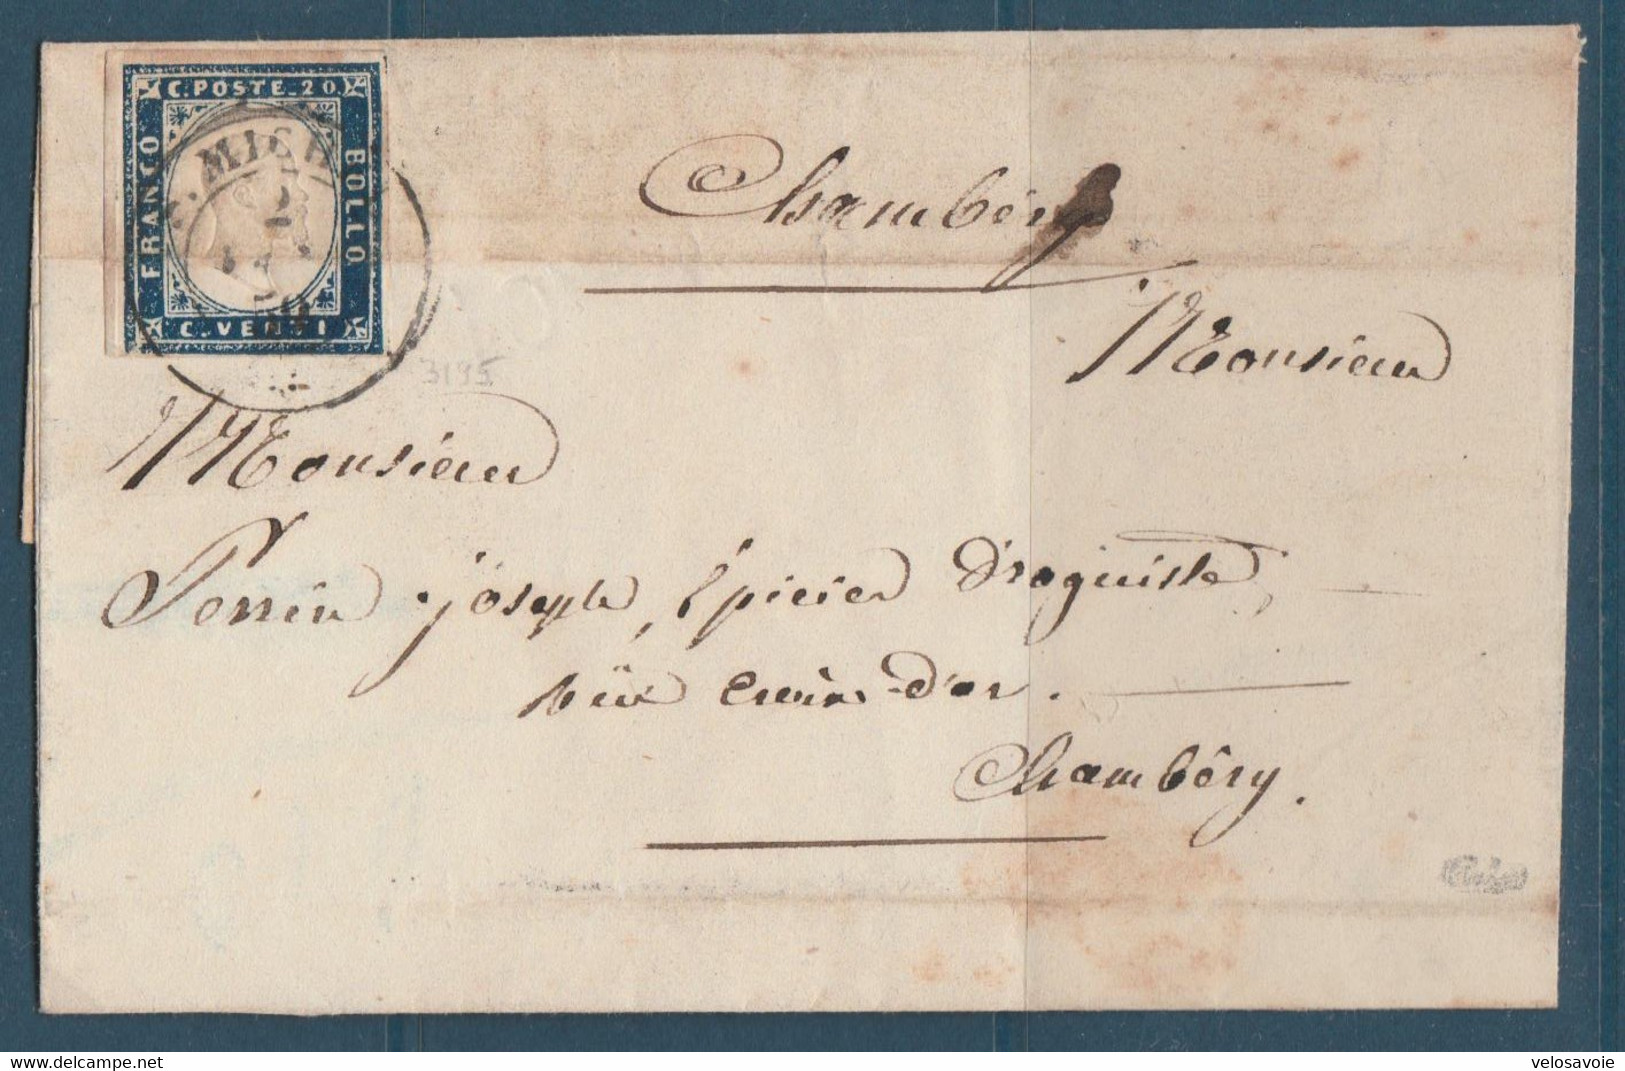 C. POSTE. 20.
FRANCO
BOLLO
C. VENTI
S. MICHEL
59
3195
Chambéry
Monsieur
Monsieur
Perrin joseph, Epicier Droguiste,
aüx Croix-d'or.
Chambêry.
velosavoie